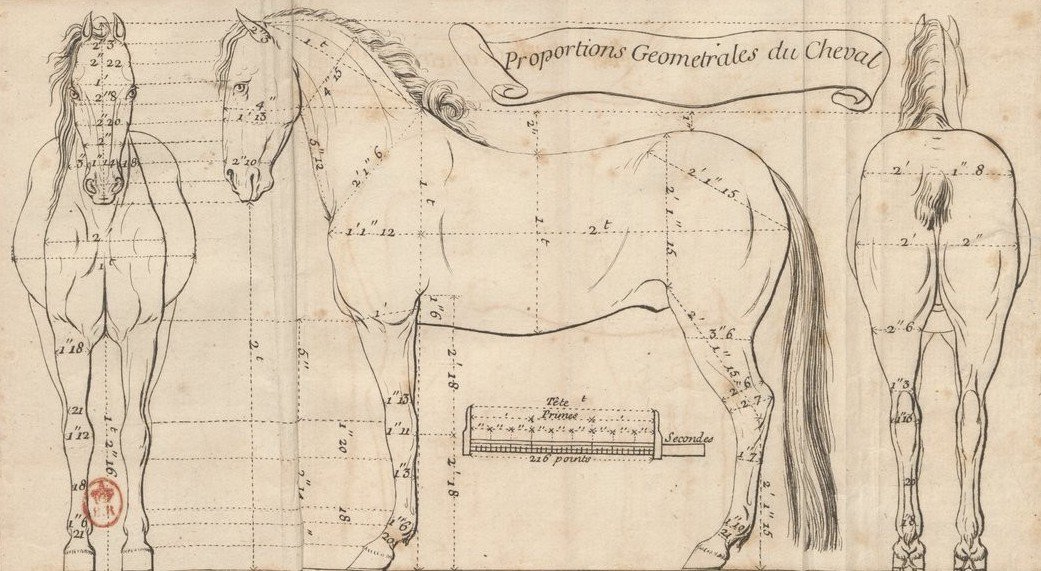 Proportions Geometrales du Cheval
2" 3
2" 22
1'
2" 8
2" 20
2"
3"
1" 14
18
2'
1 t
1" 18
21
1" 12
1 t 2" 16
18
1" 6
21
2" 3
1 t
4" 15
4"
1' 13
2" 10
5" 12
2' 1" 6
1 t
1' 1" 12
2 t
1 t
1"
2' 1" 15
2' 1" 15
1'
1" 6
2 t
5"
2' 18
1" 13
1" 11
1" 20
1" 3
2' 18
2" 14
18
1" 6
2'
3" 6
1" 15
2' 1" 15
Tête t
Primes
Secondes
216 points
2'
1" 8
2'
2"
2" 6
1" 3
20